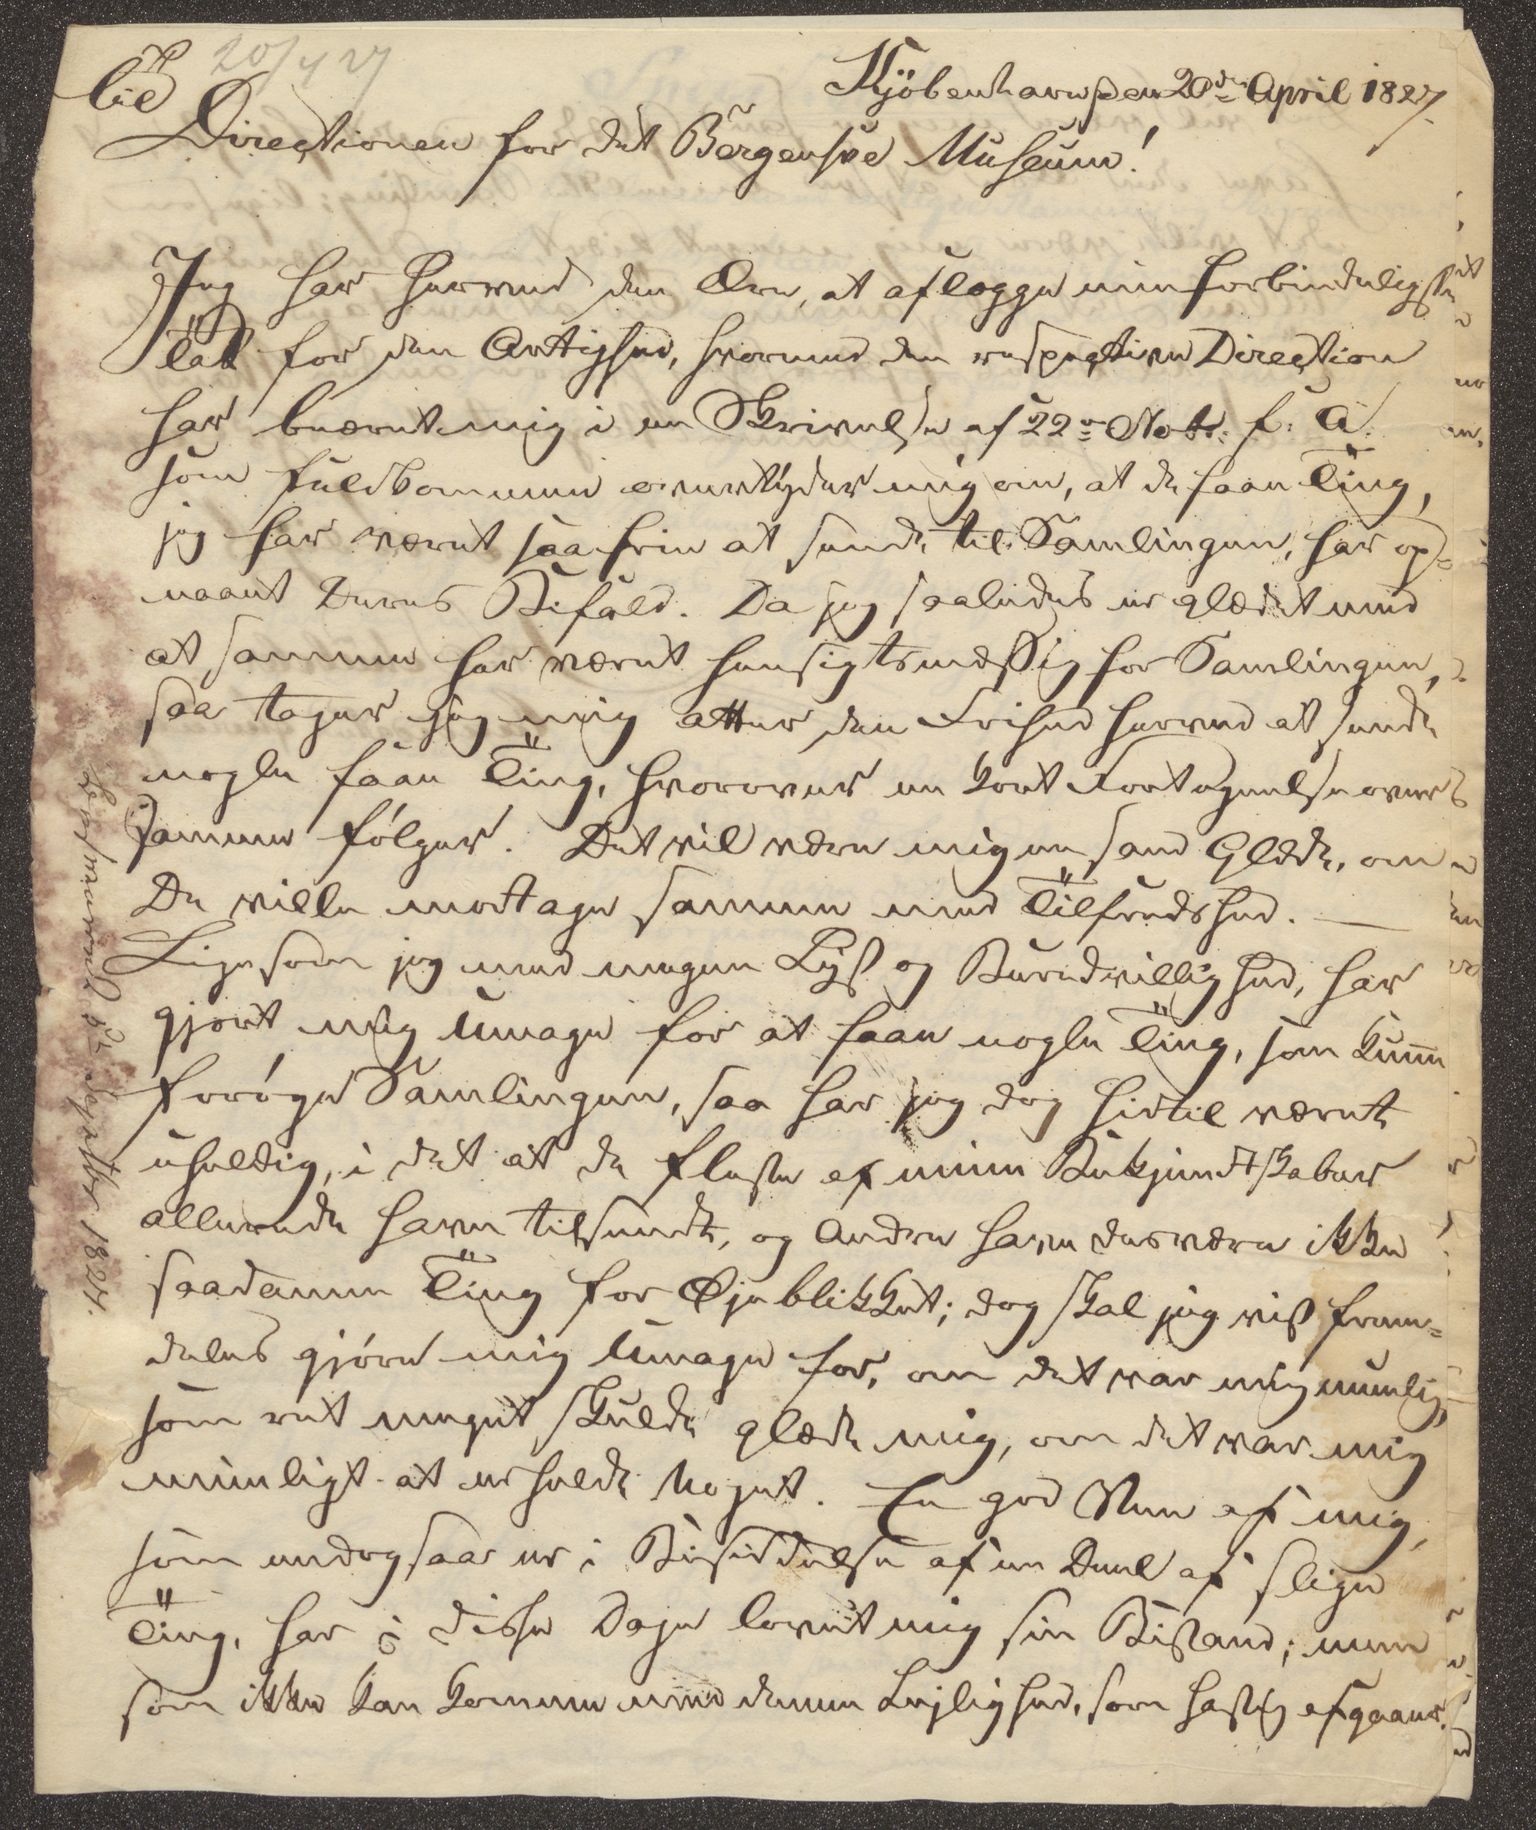 20/4 27
Kjöbenhavn den 20de April 1827.
Til
Directionen for det Bergenske Museum!
Jeg har herved den Ære, at aflægge min forbindeligste
Tak for den Artighed, hvormed den respective Direction
har beæret mig i en Skrivelse af 22de Nobr: f: A:
som fuldkommen overtyder mig om, at de faae Ting,
jeg har været saa frie at sende til Samlingen, har op-
naaet Deres Bifald. Da jeg saaledes er glædet med
at samme har været hensigtsmæssig for Samlingen,
saa tager jeg mig atter den Frihed herved at sende
nogle faae Ting, hvorover en kort Fortegnelse over
samme følger. Det vil være mig en sand Glæde, om
De ville modtage samme med Tilfredshed. —
Ligesom jeg med megen Lyst og Beredvillighed, har
gjort mig Umage for at faae nogle Ting, som kunne
forøge Samlingen, saa har jeg dog hidtil været
uheldig, i det at de fleste af mine Bekjendtskaber
allerede have tilsendt, og Andre have desværre ikke
saadanne Ting for Øjeblikket; dog skal jeg vist frem-
deles gjøre mig Umage for, om det var mig muelig,
som ret meget skulde glæde mig, om det var mig
mueligt at erholde Noget. En god Ven af mig,
som endogsaa er i Besiddelse af en Deel af slige
Ting, har i disse Dage lovet mig sin Bistand; men
som ikke kan komme med denne Lejlighed, som hastig afgaaer.
1827.